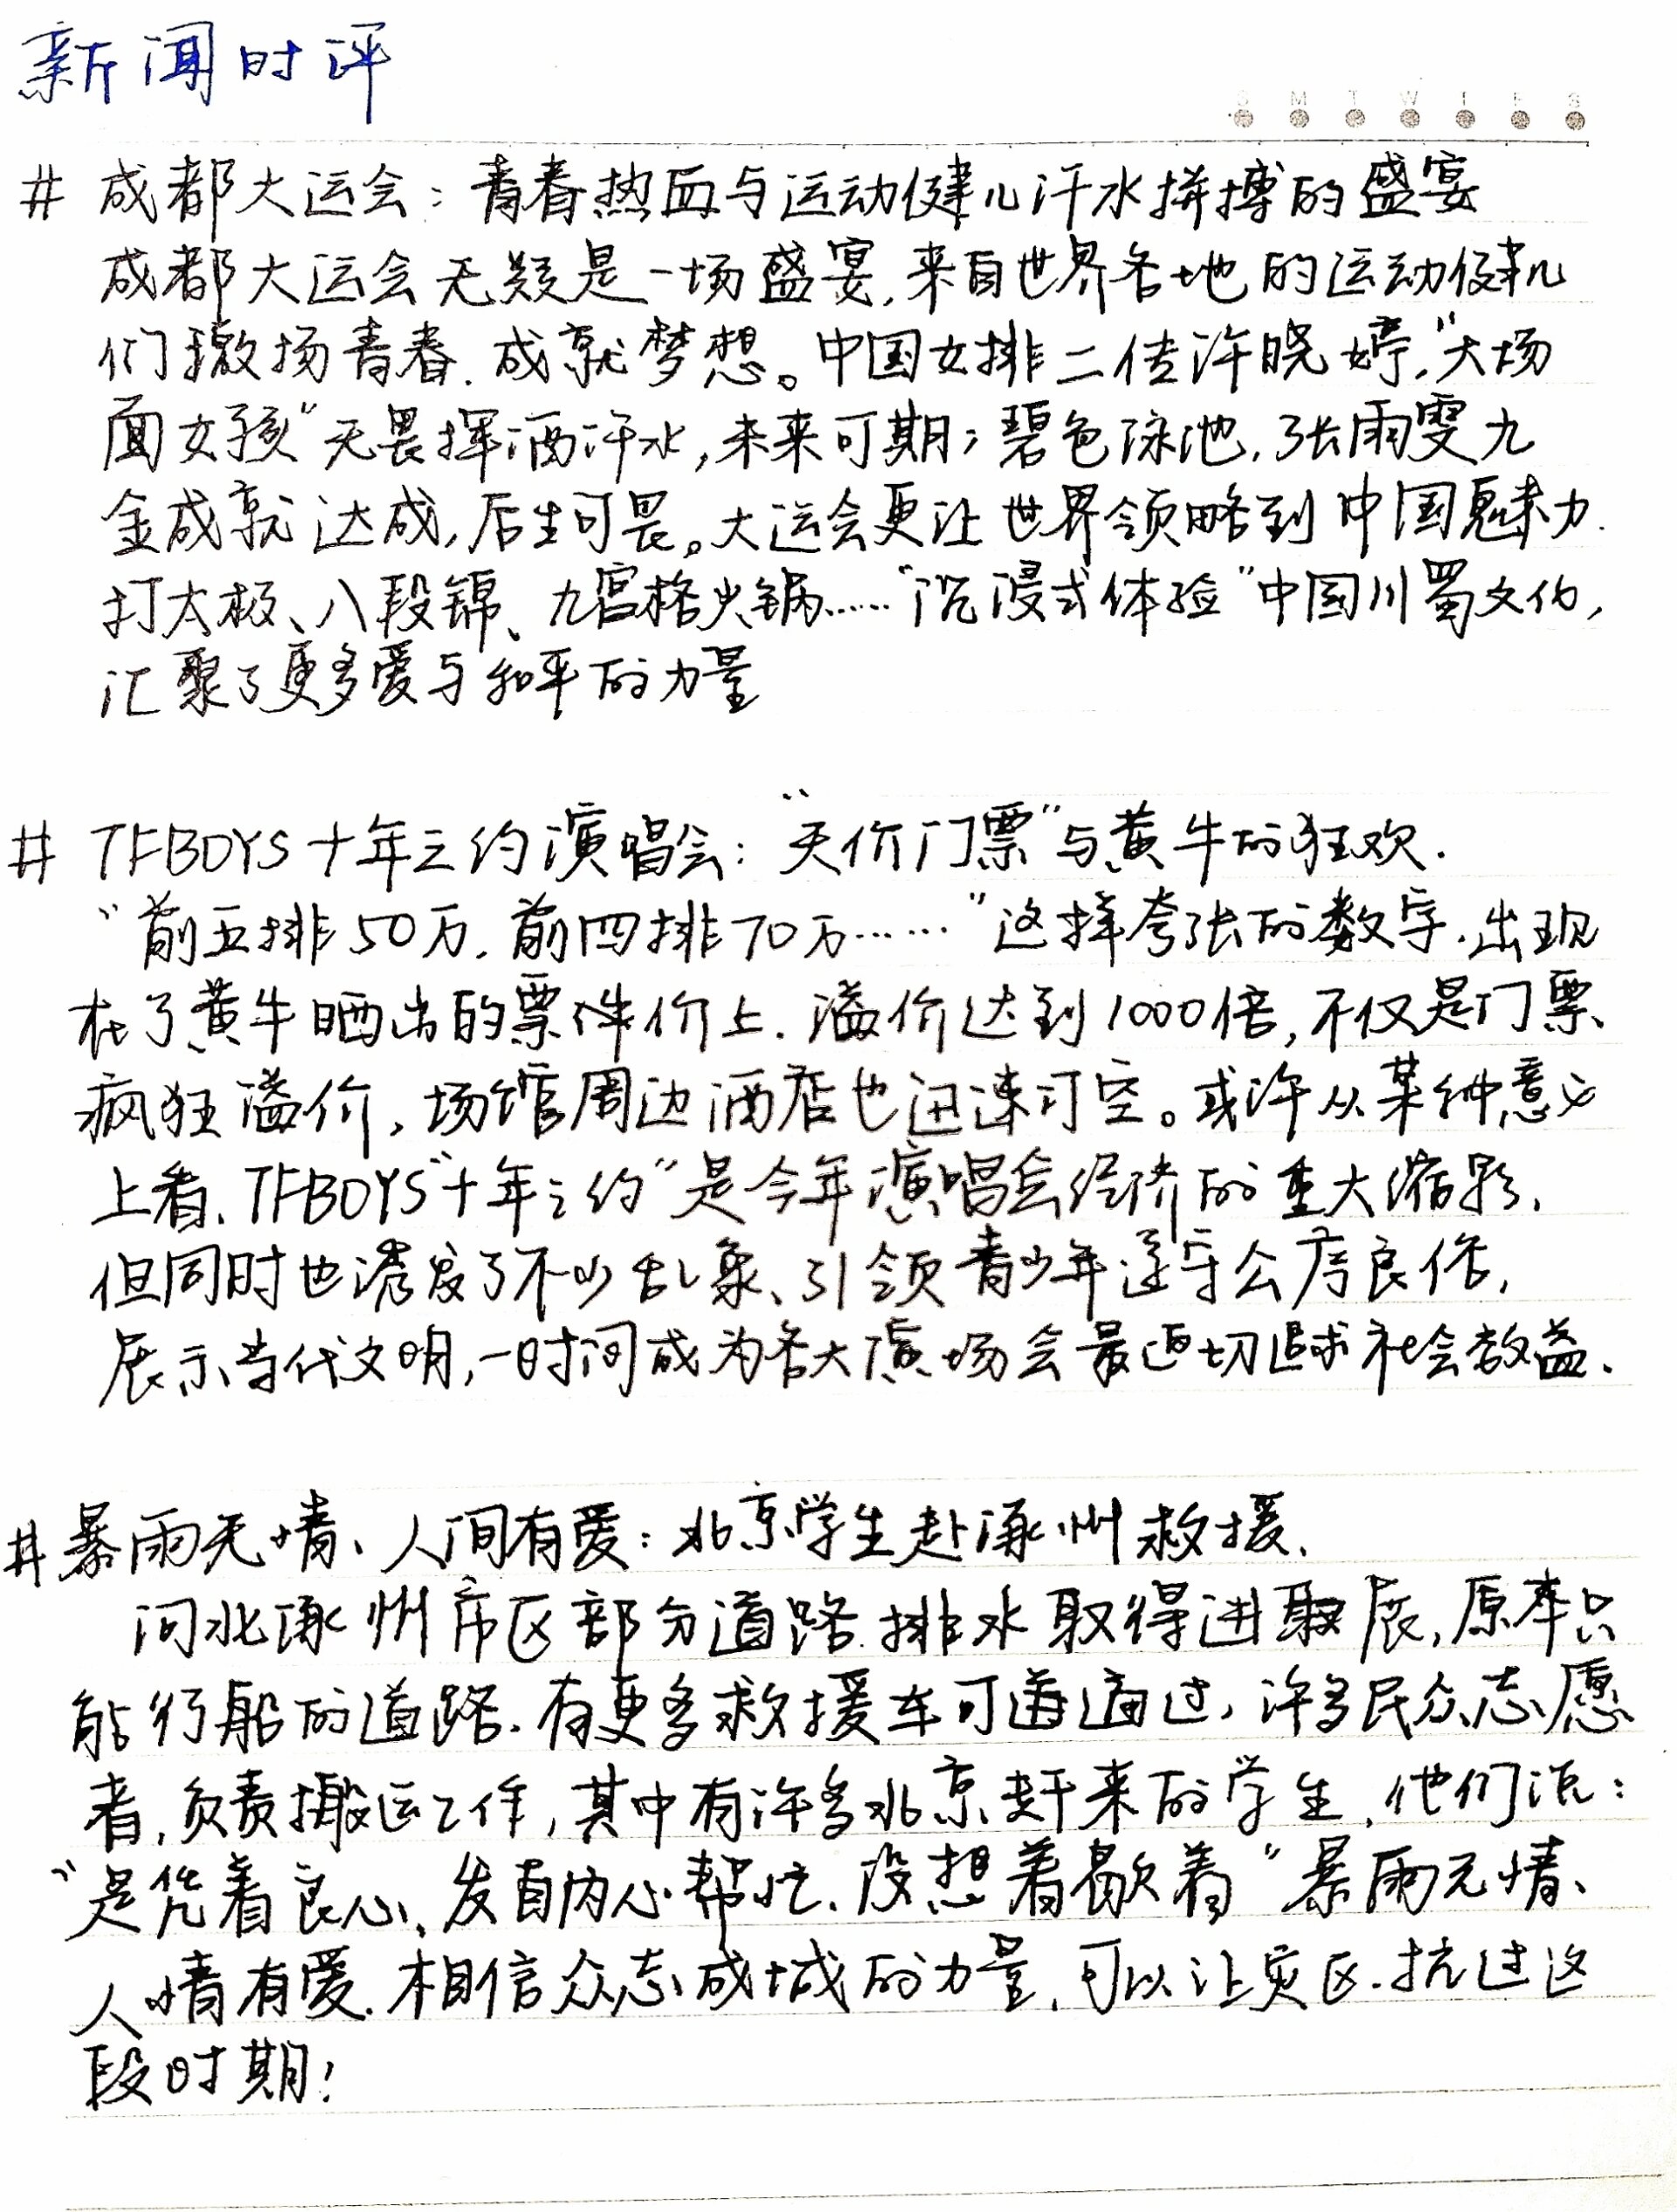 新闻时评
S M T W T F S
# 成都大运会：青春热血与运动健儿汗水拼搏的盛宴
成都大运会无疑是一场盛宴，来自世界各地的运动健儿
们激扬青春，成就梦想。中国女排二传许晓婷，“大场
面女孩”无畏挥洒汗水，未来可期；碧色泳池，张雨雯九
金成就达成，后生可畏。大运会更让世界领略到中国魅力.
打太极、八段锦、九宫格火锅……“沉浸式体验”中国川蜀文化，
汇聚了更多爱与和平的力量
# TFBOYS十年之约演唱会：“天价门票”与黄牛的狂欢.
“前五排50万，前四排70万……”这样夸张的数字，出现
在了黄牛晒出的票件价上.溢价达到1000倍，不仅是门票
疯狂溢价，场馆周边酒店也迅速订空。或许从某种意义
上看，TFBOYS“十年之约”是今年演唱会经济的重大缩影，
但同时也诱发了不少乱象、引领青少年遵守公序良俗，
展示当代文明，一时间成为各大演场会最迫切追求社会效益.
#暴雨无情、人间有爱：北京学生赴涿州救援.
河北涿州市区部分道路排水取得进展，原本只
能行船的道路，有更多救援车可通过，许多民众志愿
者，负责搬运工作，其中有许多北京赶来的学生，他们说：
“是凭着良心，发自内心帮忙，没想着歇着”暴雨无情、
人情有爱.相信众志成城的力量，可以让灾区.抗过这
段时期！